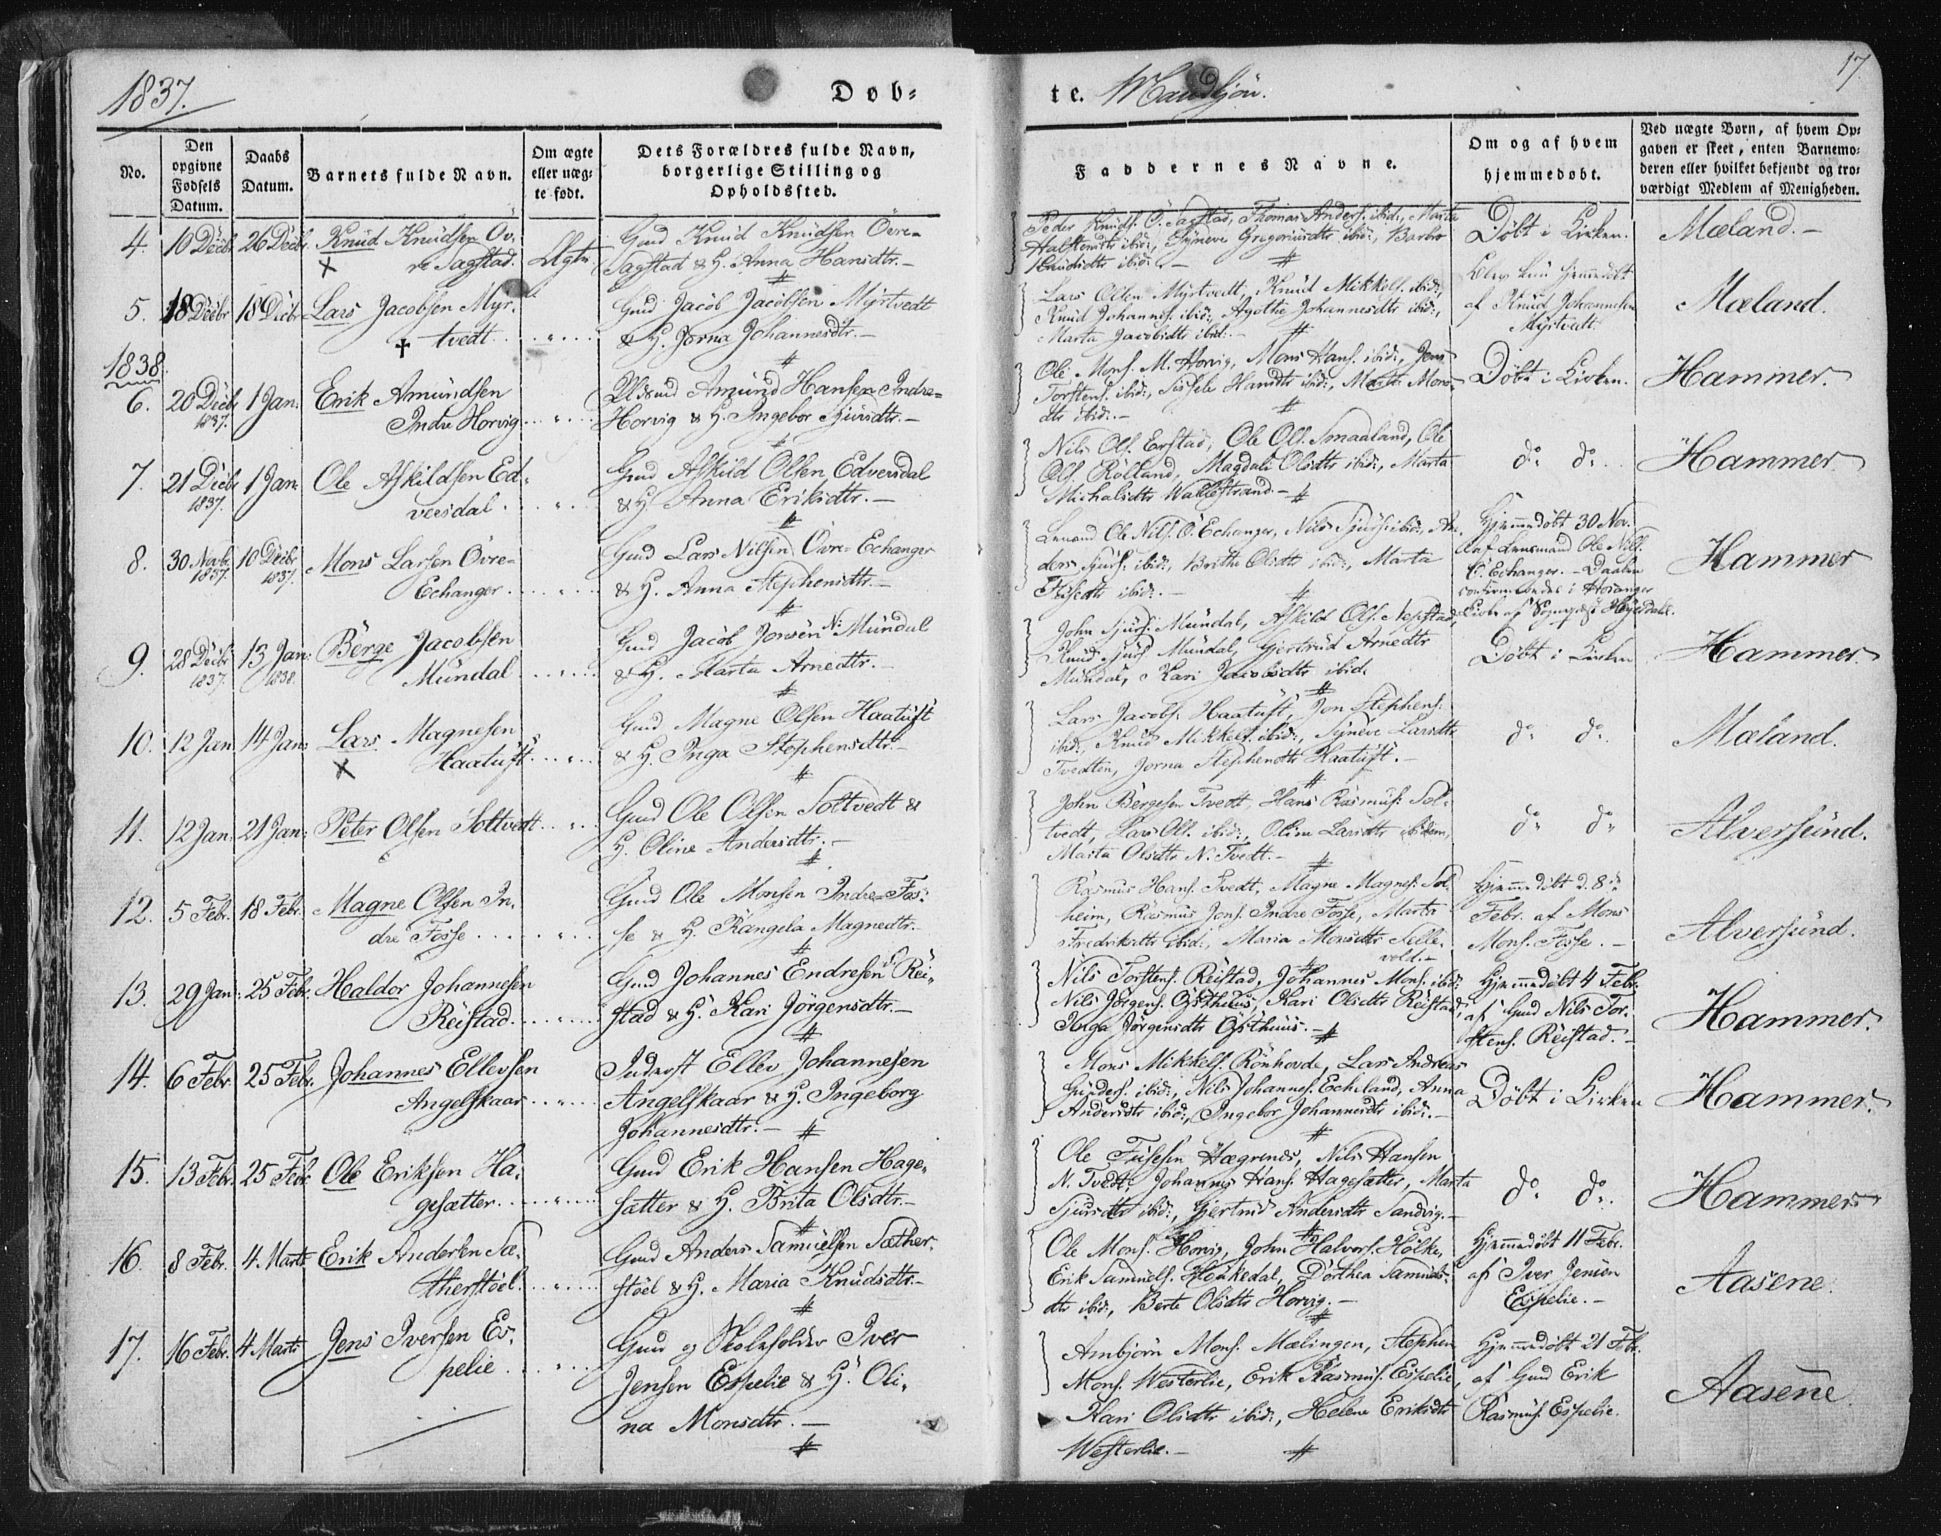 1837.
Döb-
te. Mandkjön.
17
No.
Den opgivne Fødsels Datum.
Daabs Datum.
Barnets fulde Navn.
Om ægte eller uægte født.
Dets Forældres fulde Navn, borgerlige Stilling og Opholdssted.
Faddernes Navne.
Om og af hvem hjemmedøbt.
Ved uægte Børn, af hvem Opgaven er skeet, enten Barnemoderen eller hvilket bekjendt og troværdigt Medlem af Menigheden.
4. 10 Decbr 26 Decbr Knud Knudsen Öv-
re Sagstad. Ægte.
Gmd Knud Knudsen Övre-
Sagstad & H. Anna Hansdtr.-
Peder Knuds. Ö. Sagstad, Thomas Anders. ibid., Marta
Halstensdtr ibid:, Synneve Gregoriusdtr ibid:, Barbro
Knudsdtr ibid.-
Döbt i Kirken.
Mæland.-
5. 18 Decbr 18 Decbr Lars Jacobsen Myr-
tvedt
Gmd Jacob Jacobsen Myrtvedt
& H. Jorna Johannesdtr.-
Lars Olsen Myrtvedt, Knud Mikkels. ibid:,
Knud Johannes. ibid:, Agathe Johannesdtr ibid:,
Marta Jacobsdtr ibid.-
Blev kun hjemmedöbt
af Knud Johannesen
Myrtvedt
Mæland.
1838.
6. 20 Decbr 1837. 1 Jan: Erik Amundsen
Indre Horvig
Amund Hansen Indre-
Horvig & H. Ingebor Sjursdtr.-
Ole Mons. M. Horvig, Mons Hans. ibid:, Jens
Torstens. ibid:, Sissele Hansdtr ibid:, Marta Mons-
dtr ibid:.-
Döbt i Kirken.
Hammer.
7. 21 Decbr 1837. 1 Jan: Ole Askildsen Ed-
versdal
Gmd Askild Olsen Edversdal
& H. Anna Eriksdtr.-
Nils Ols. Erstad, Ole Ols. Smaaland, Ole
Ols. Rölland, Magdali Olsdtr ibid:, Marta
Michalsdtr Walöstrand.-
do do.
Hammer
8. 30 Novbr 1837. 10 Decbr 1837. Mons Larsen Övre-
Echanger
Gmd Lars Nilsen Övre-Echanger
& H. Anna Stephensdtr.-
Lensmd Ole Nils. Ö. Echanger, Nils Sjurs. ibid:, An-
ders Sjurs. ibid:, Brithe Olsdtr ibid:, Marta
ibid:.-
Hjemmedöbt 30 Nov.
af Lensmand Ole Nils.
Ö. Echanger.- Daaben
i Hosanger
Kirke af
Hammer
9. 28 Decbr 1837. 13 Jan: 1838. Börge Jacobsen
Mundal
Gmd Jacob Jonsen N: Mundal
& H. Marta Arnedtr.-
John Sjurs. Mundal, Askild Ols. Nepstad,
Knud Sjurs. Mundal, Gjertrud Arnedtr
Mundal, Kari Jacobsdtr ibid.
Döbt i Kirken
Hammer.
10. 12 Jan: 14 Jan: Lars Magnesen
Haatuft
Gmd Magne Olsen Haatuft
& H. Inga Stephensdtr.-
Lars Jacobs. Haatuft, Jon Stephens.
ibid:, Knud Mikkels. ibid:, Synneve Larsdtr
Tvedten, Jorna Stephensdtr Haatuft.-
do do.
Mæland.
11. 12 Jan: 21 Jan: Peter Olsen Soltvedt
Gmd Ole Olsen Soltvedt &
H. Oline Andersdtr.-
John Börgesen Tvedt, Hans Rasmus. Sol-
tvedt, Lars Ols. ibid:, Oline Larsdtr ibidem,
Marta Olsdtr N. Tvedt.-
do do
Alversund.
12. 5 Febr. 18 Febr. Magne Olsen In-
dre Fosse
Gmd Ole Monsen Indre-Fos-
se & H. Rangela Magnedtr.-
Rasmus Hans. Tvedt, Magne Magnes. Sol-
heim, Rasmus Jons. Indre Fosse, Marta
Fredriksdtr ibid:, Maria Monsdtr Selle-
vold.-
Hjemmedöbt d. 8de
Febr. af Mons
Mons. Fosse.-
Alversund.
13. 29 Jan: 25 Febr. Haldor Johannesen
Reistad
Gmd Johannes Endresen Rei-
stad & H. Kari Jörgensdtr.-
Nils Torstens. Reistad, Johannes Mons. ibid:
Nils Jörgens. Östhuus, Kari Olsdtr Reistad,
Inga Jörgensdtr Östhuus.-
Hjemmedöbt 4 Febr.
af Gmd Nils Tor-
stens. Reistad.-
Hammer.
14. 6 Febr 25 Febr. Johannes Ellevsen
Angelskaar
Inderst Ellev Johannesen
Angelskaar & H. Ingeborg
Johannesdtr.-
Mons Mikkels. Rönhovde, Lars Andreas
Gunders. ibid:, Nils Johannes. Echeland, Anna
Andersdtr ibid:, Ingebor Johannesdtr ibid:.-
Döbt i Kirken
Hammer.
15. 13 Febr. 25 Febr Ole Eriksen Ha-
gesætter
Gmd Erik Hansen Hage-
sætter & H. Brita Olsdtr.-
Ole Hægrenes, Nils Hansen
N. Tvedt, Johannes Hans. Hagesætter, Marta
Sjursdtr ibid:, Gjertrud Andersdtr Sandvig.-
do do.
Hammer
16. 8 Febr. 4 Marts Erik Andersen Sæ-
therstöel
Gmd Anders Samuelsen Sæther-
stöel & H. Maria Knudsdtr.-
Ole Mons. Horvig, John Halvors. Holke,
Erik Samuels. Hökedal, Dorthea Samuels-
dtr ibid:, Berte Olsdtr Horvig.-
Hjemmedöbt 11 Febr.
af Iver Jensen
Espelie.-
Aasene.
17. 16 Febr. 4 Marts Jens Iversen Es-
pelie
Gmd og Skoleholder Iver
Jensen Espelie & H. Oli-
na Monsdtr.-
Ambjörn Mons. Mælingen, Stephen
Mons. Westerlie, Erik Rasmus. Espelie,
Kari Olsdtr ibid:, Helene Eriksdtr
Westerlie.-
Hjemmedöbt 21 Febr.
af Gmd Erik
Rasmus. Espelie.
Aasene